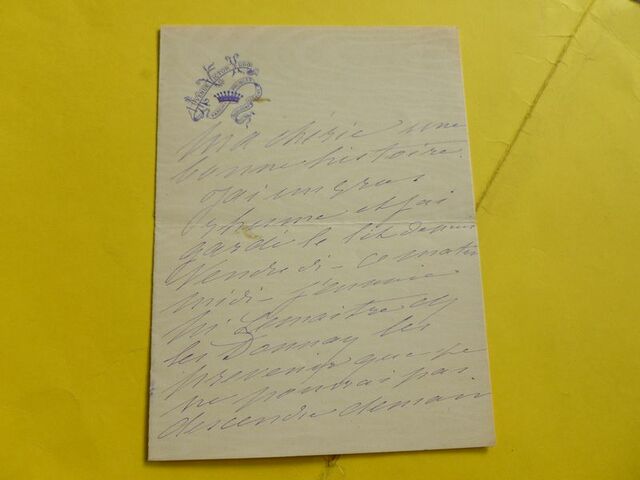 AVENUE VICTOR HUGO
Ma chérie une
bonne histoire.
J'ai un gros
rhume et j'ai
gardé le lit depuis
Vendredi - ce matin
midi - j'envoie
Lemaitre et
les Donnay les
prévenir que je
ne pourrai pas
descendre demain